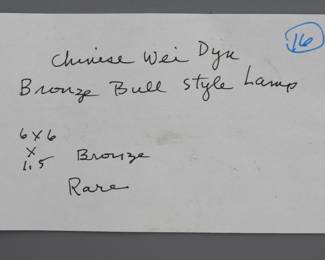 16
Chinese Wei Dyn
Bronze Bull Style Lamp
6 x 6
x
1.5 Bronze
Rare